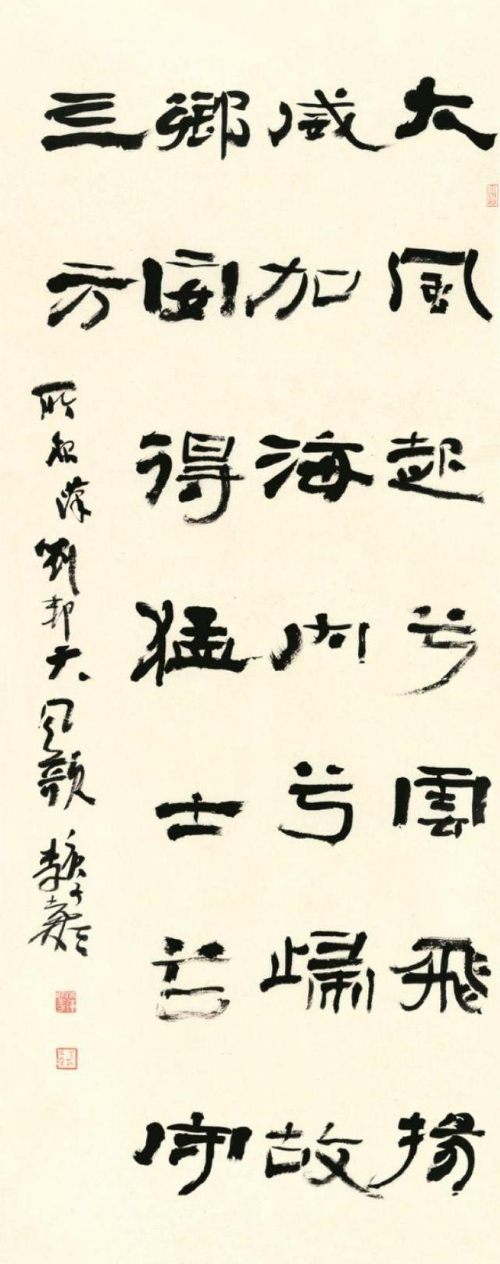 大風起兮雲飛揚
威加海内兮歸故
鄉安得猛士兮守
三方
漢劉邦大風歌